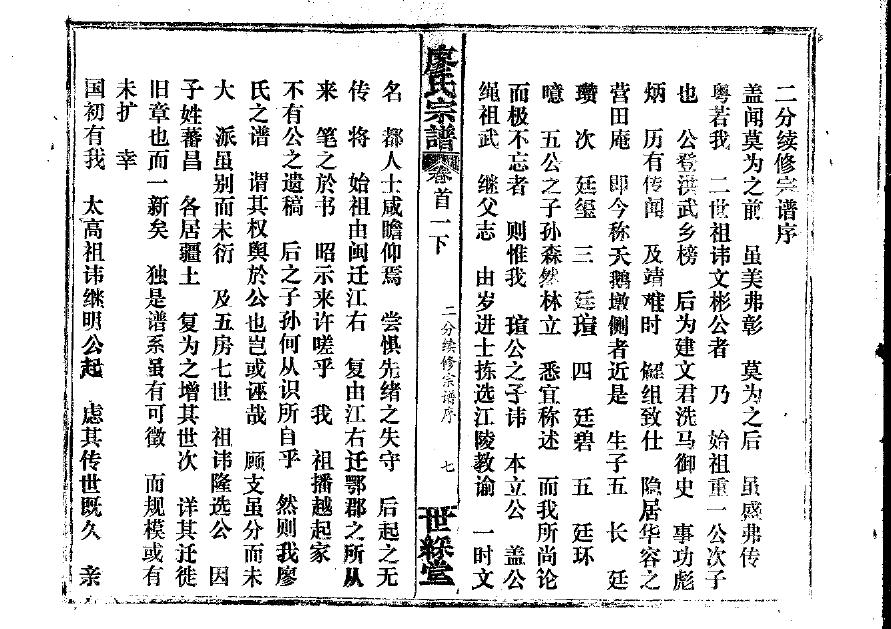 二分续修宗谱序
盖闻莫为之前 虽美弗彰 莫为之后 虽盛弗传
粤若我 二世祖讳文彬公者 乃 始祖重一公次子
也 公登洪武乡榜 后为建文君洗马御史 事功彪
炳 历有传闻 及靖难时 解组致仕 隐居华容之
营田庵 即今称天鹅墩侧者近是 生子五 长 廷
瓒 次 廷玺 三 廷瑄 四 廷碧 五 廷环
噫 五公之子孙森然林立 悉宜称述 而我所尚论
而极不忘者 则惟我 瑄公之子讳 本立公 盖公
绳祖武 继父志 由岁进士拣选江陵教谕 一时文
廖氏宗譜 卷首一下 二分续修宗谱序 七 世綵堂
名 都人士咸瞻仰焉 尝惧先绪之失守 后起之无
传 将 始祖由闽迁江右 复由江右迁鄂郡之所从
来 笔之於书 昭示来许嗟乎 我 祖播越起家
不有公之遗稿 后之子孙何从识所自乎 然则我廖
氏之谱 谓其权舆於公也岂或诬哉 顾支虽分而未
大 派虽别而未衍 及五房七世 祖讳隆选公 因
子姓蕃昌 各居疆土 复为之增其世次 详其迁徙
旧章也而一新矣 独是谱系虽有可徵 而规模或有
未扩 幸
国初有我 太高祖讳继明公起 虑其传世既久 亲